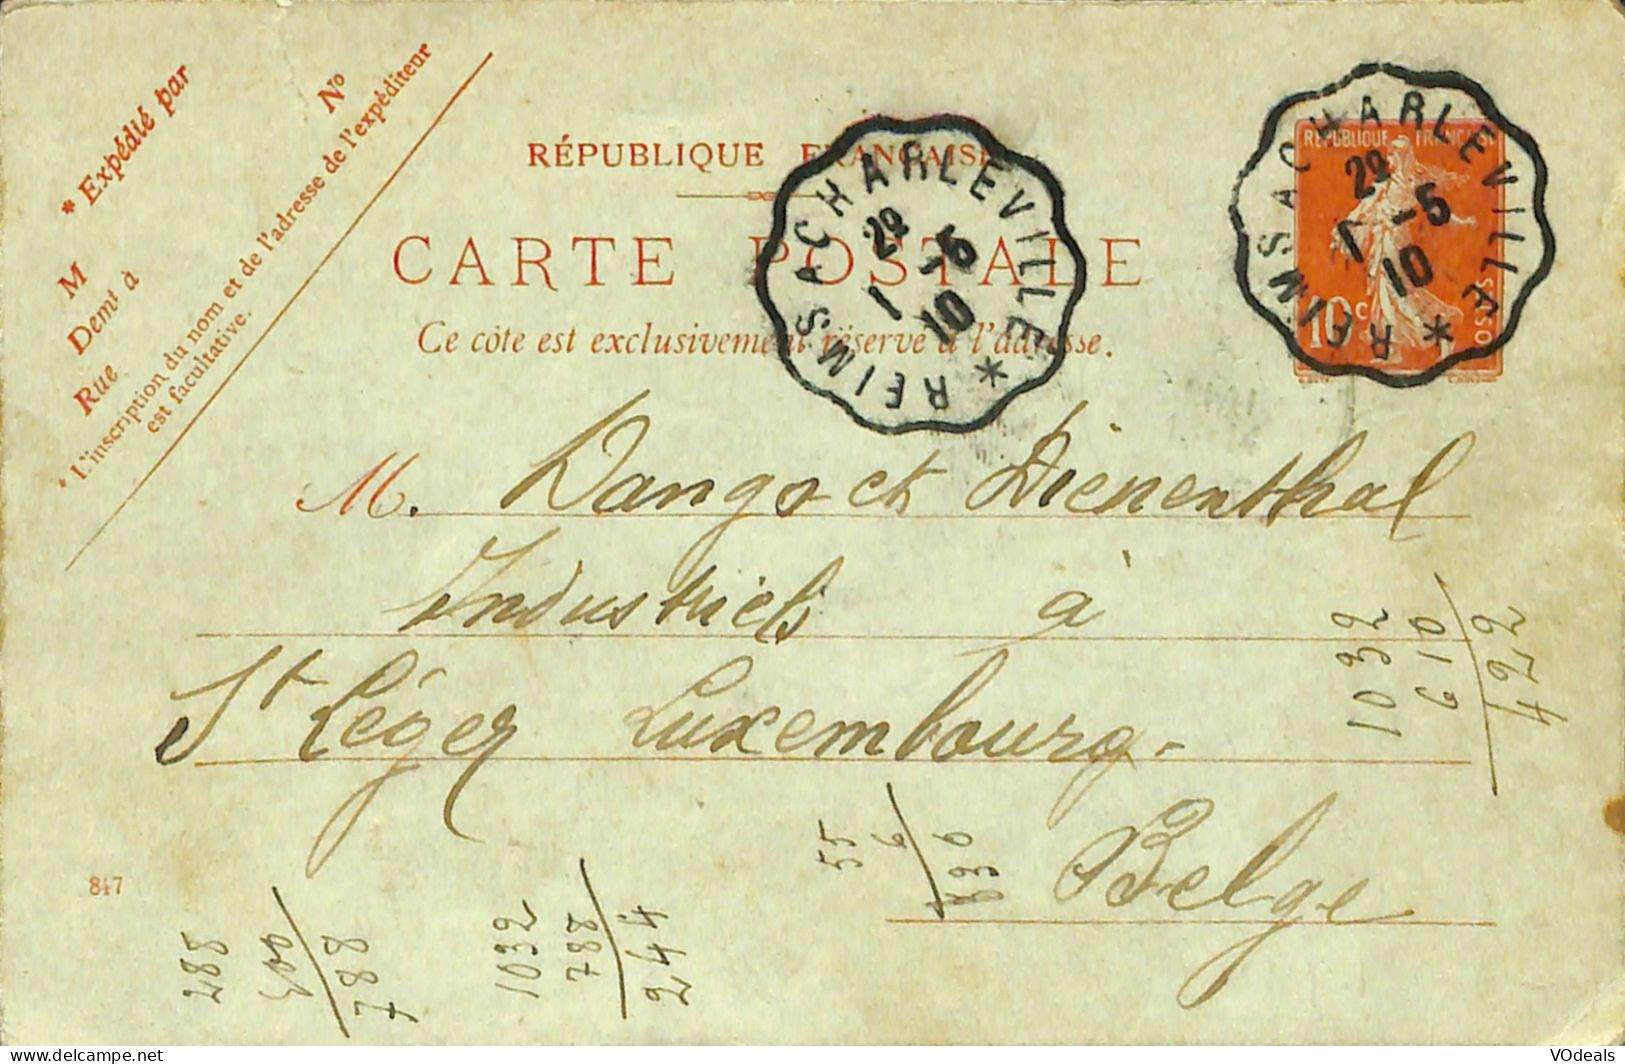 * Expédié par
N°
M
Demt à
Rue
* L'inscription du nom et de l'adresse de l'expéditeur
est facultative.
RÉPUBLIQUE FRANÇAISE
CARTE POSTALE
Ce côté est exclusivement réservé à l'adresse.
REIMS A CHARLEVILLE *
2º
1 -5
10
REIMS A CHARLEVILLE *
2º
1 -5
10
RÉPUBLIQUE FRANÇAISE
10c
POSTES
M. Dangs et Dienenthal
Industriels à
St Léger Luxembourg-
Belge
847
285
500
788
1032
788
244
55
6
330
1032
610
422
VOdeals